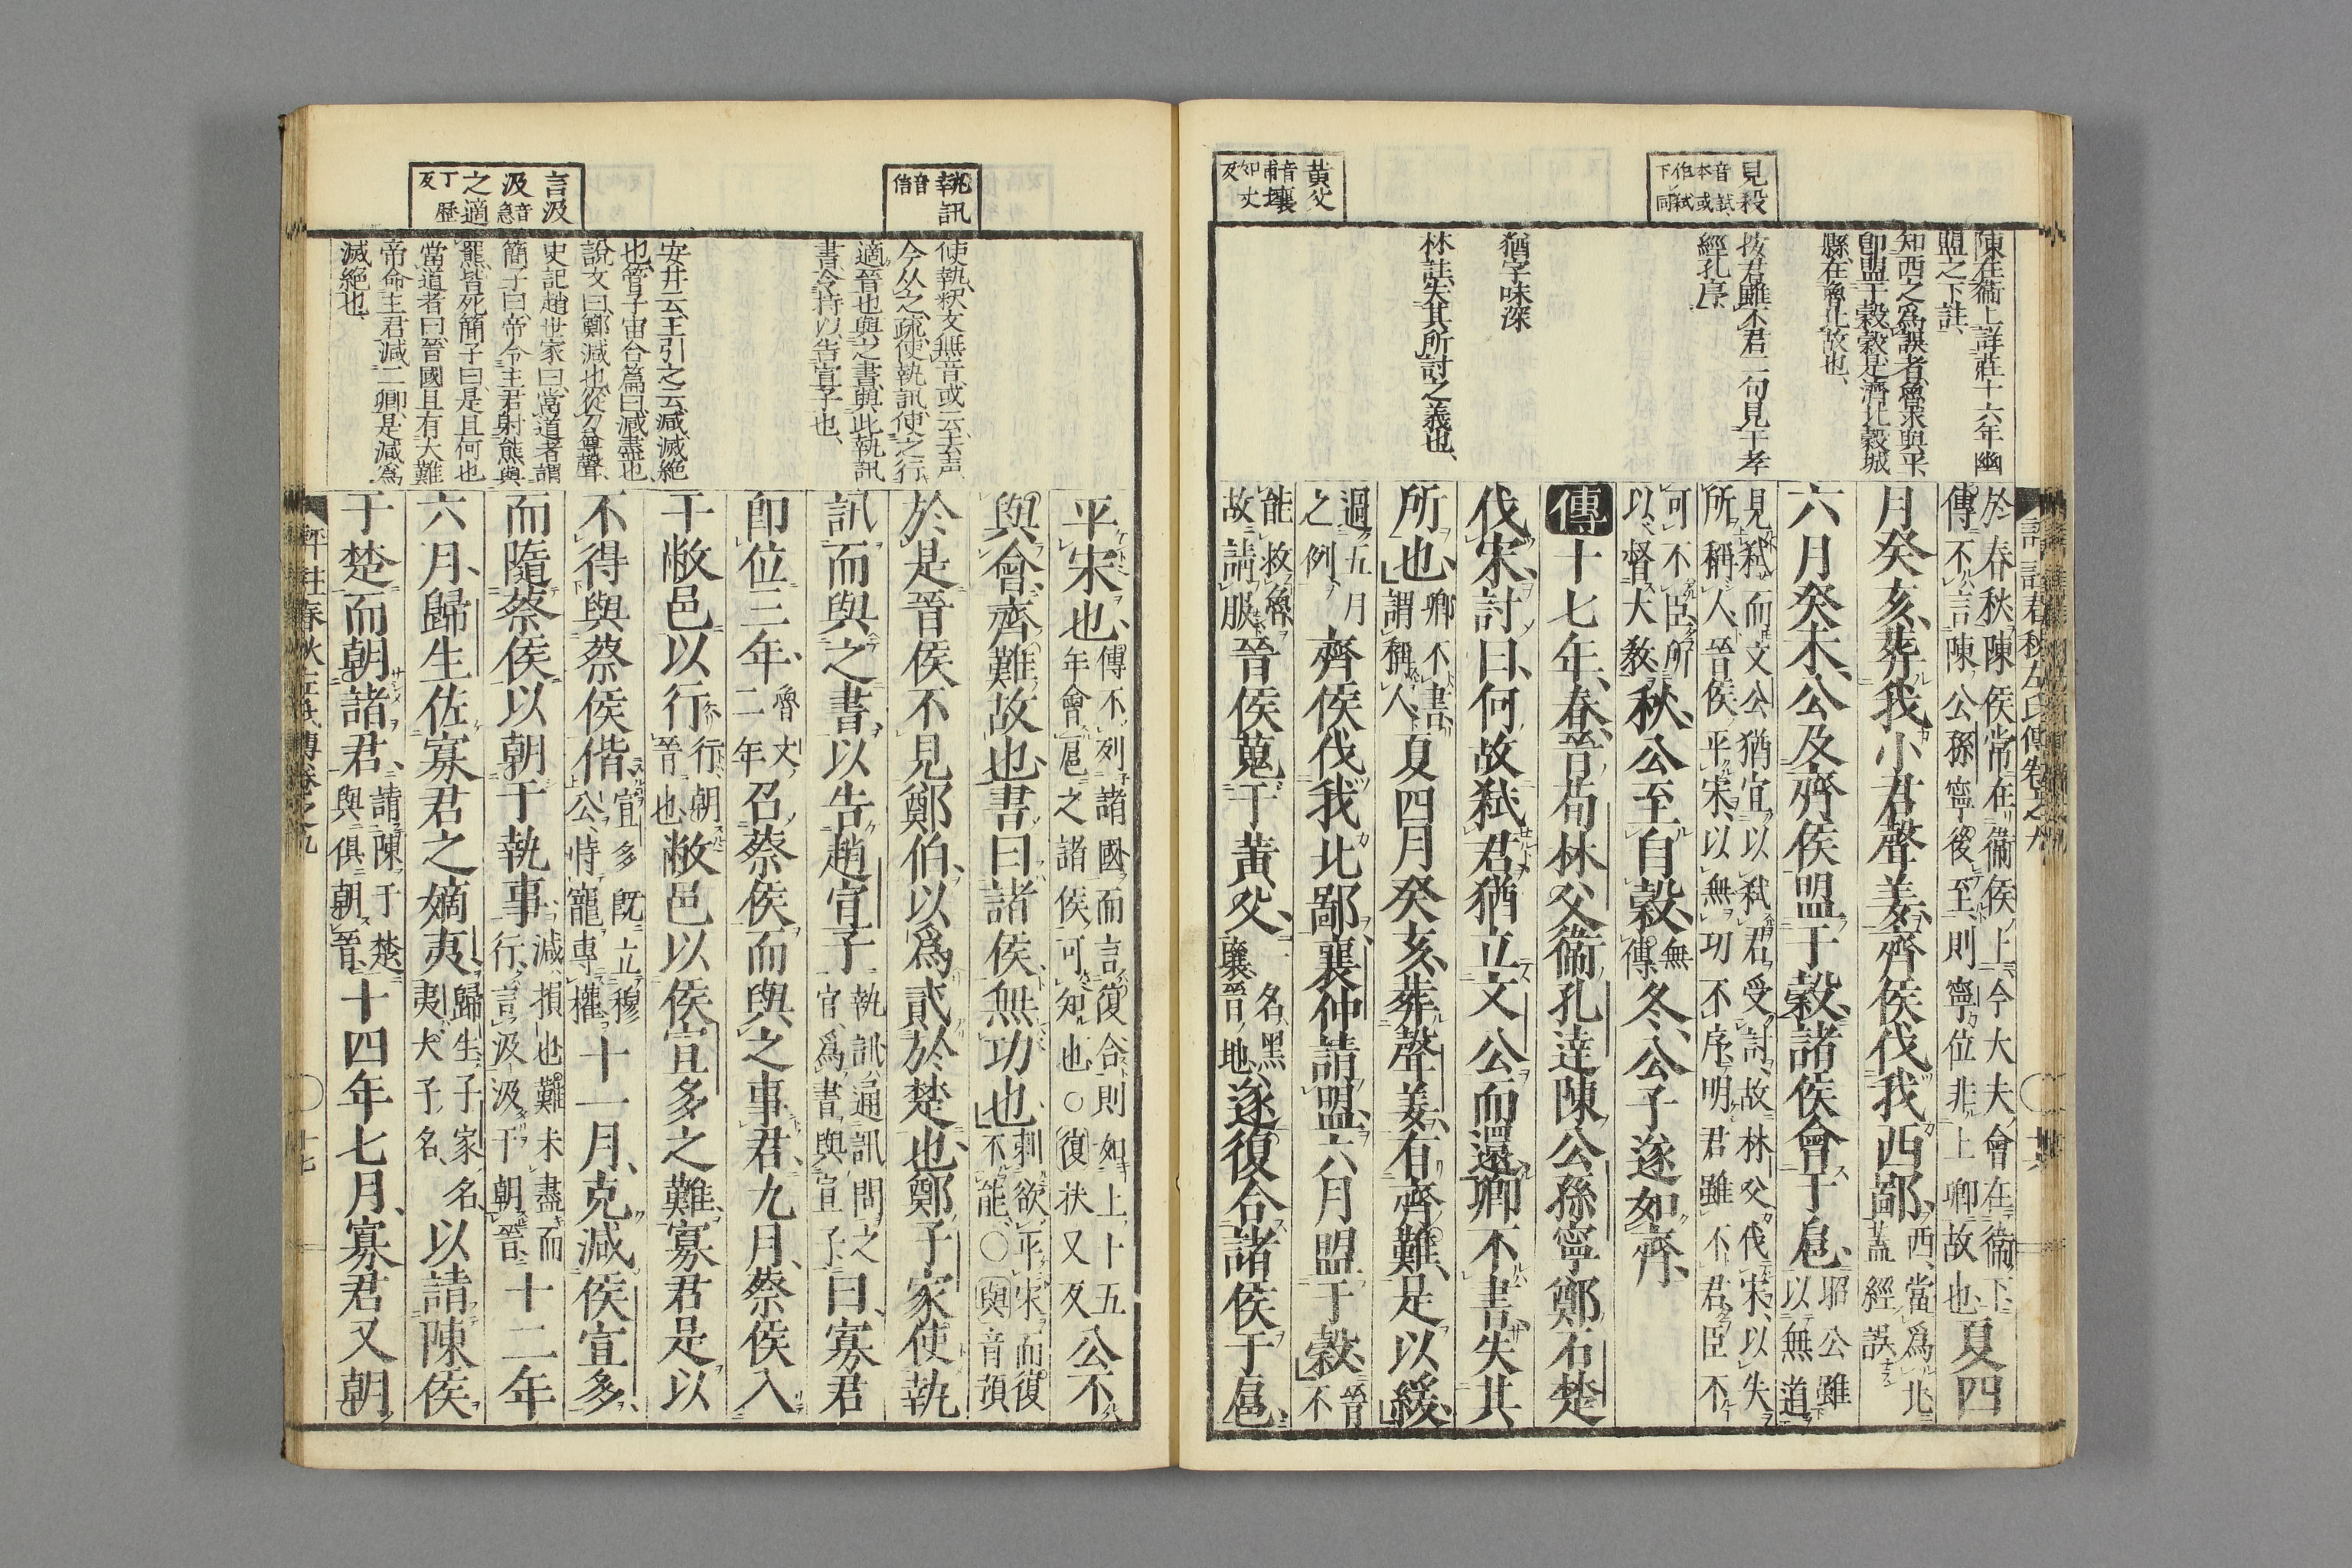 見殺 音試本或作弑下同
黃父 音甫 壤 如丈反
陳在衞上詳莊十六年幽
盟之下註、
知西之爲誤者魯求與平、
卽盟于穀穀是濟北穀城
縣在魯北故也、
按君雖不君二句見于孝
經孔序
猶字味深
林註失其所討之義也、
於春秋陳侯常在衞侯上今大夫會在衞下傳不言陳公孫寧後至則寧位非上卿故也夏四
月癸亥葬我小君聲姜齊侯伐我西鄙西當爲北蓋經誤
六月癸未公及齊侯盟于穀諸侯會于扈昭公雖以無道
見弑而文公猶宜以弑君受討故林父伐宋以失所稱人晉侯平宋以無功不序明君雖不君臣不
可不臣所以督大教秋公至自穀無傳冬公子遂如齊
傳十七年春晉荀林父衞孔達陳公孫寧鄭石楚
伐宋討曰何故弑君猶立文公而還卿不書失其
所也卿不書謂稱人夏四月癸亥葬聲姜有齊難是以緩
過五月之例齊侯伐我北鄙襄仲請盟六月盟于穀晉不
能救魯故請服晉侯蒐于黃父一名黑壤晉地遂復合諸侯于扈
執訊 音信
言汲 音急 之適 丁歷反
使執、釈文無音、或云、去声、
今从之、疏、使執訊、使之行
適晉也、與之書、與此執訊
書、令持以告宣子也、
安井云、王引之云、減、滅絕
也、管子宙合篇曰、減盡也、
說文曰、鄭減也、從刀尊聲、
史記趙世家曰、當道者謂
簡子曰、帝令主君射熊與
羆、皆死、簡子曰、是且何也、
當道者曰、晉國且有大難
帝命主君減二卿、是減爲
滅絕也、
平宋也傳不列諸國而言復合則如上十五年會扈之諸侯可知也〇復扶又反公不
與會齊難故也書曰諸侯無功也刺欲平宋而復不能〇與音預
於是晉侯不見鄭伯以爲貳於楚也鄭子家使執
訊而與之書以告趙宣子執訊通訊問之官爲書與宣子曰寡君
卽位三年魯文二年召蔡侯而與之事君九月蔡侯入
于敝邑以行行朝晉也敝邑以侯宣多之難寡君是以
不得與蔡侯偕宣多旣立穆公恃寵專權十一月克減侯宣多
而隨蔡侯以朝于執事減損也難未盡而行言汲汲于朝晉十二年
六月歸生佐寡君之嫡夷歸生子家名夷太子名以請陳侯
于楚而朝諸君請陳于楚與俱朝晉十四年七月寡君又朝